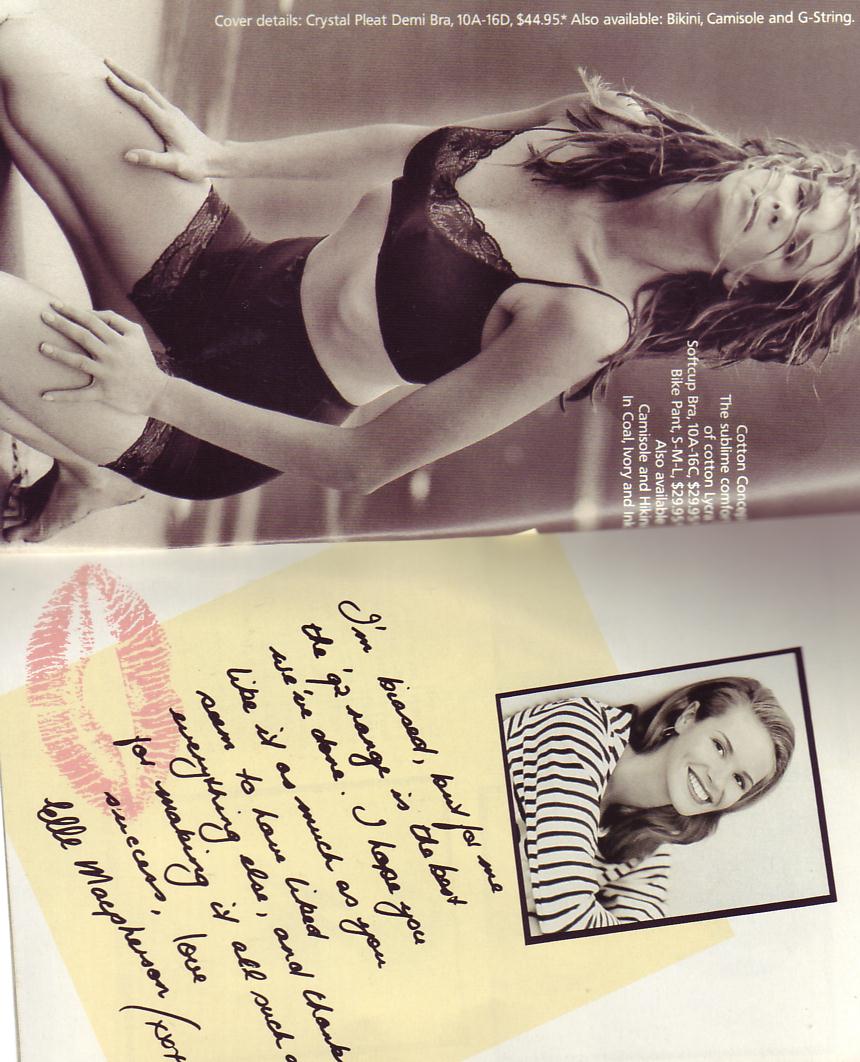 Cover details: Crystal Pleat Demi Bra, 10A-16D, $44.95.* Also available: Bikini, Camisole and G-String.
Cotton
The sublime
of cotton
Softcup Bra, 10A-16C, $29.95
Bike Pant, S-M-L, $29.95
Also available
Camisole and
In Coal, Ivory and
I'm biased, but for me
the '92 range is the best
we've done. I hope you
like it as much as you
seem to have liked
everything else, and thank
for making it all such a
success, love
Elle Macpherson /xox